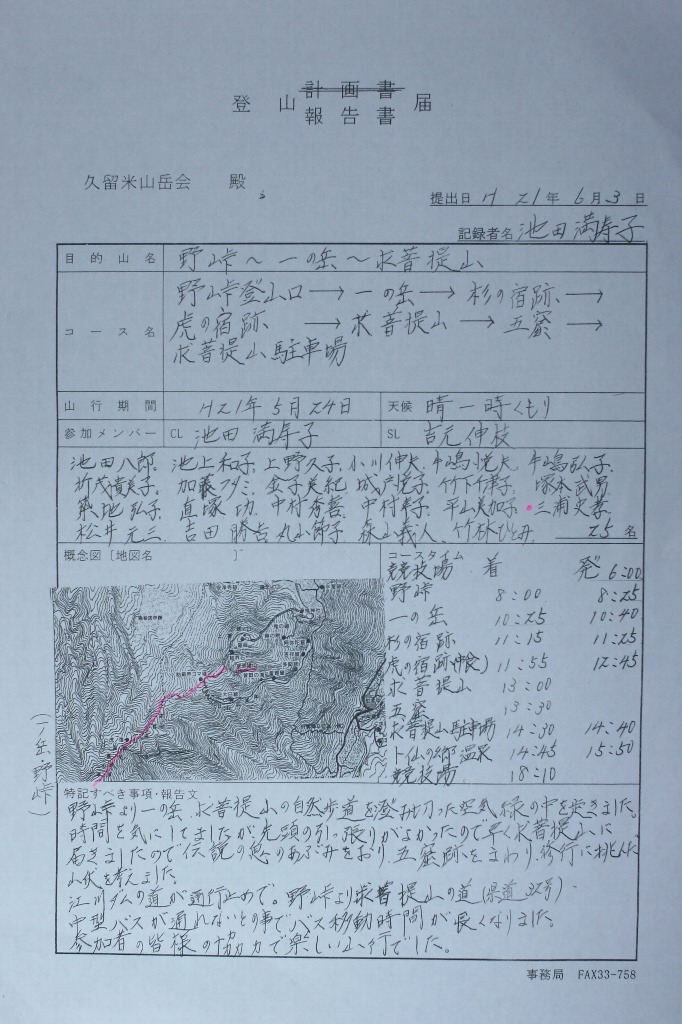 登山 計画書 届
報告書
久留米山岳会 殿
提出日 H 21年 6月 3日
記録者名 池田 満寿子
目的山名 野峠～一の岳～求菩提山
コース名 野峠登山口→一の岳→杉の宿跡→
虎の宿跡 →求菩提山→五窟→
求菩提山駐車場
山行期間 H21年5月24日 天候 晴一時くもり
参加メンバー CL 池田 満寿子 SL 吉元伸枝
池田八郎. 池上和子. 上野久子. 小川伸夫. 牛嶋悦夫. 牛嶋弘子.
折茂貴美子. 加藤フミ. 金子美紀. 城戸悦子. 竹下竹津子. 塚本武男
築地弘子. 直塚功. 中村秀善 中村孝子. 平山美加子. 三浦史孝
松井元三. 吉田勝吉 丸山節子. 森山義人. 竹林ひとみ. 25名
概念図〔地図名 〕
コースタイム
競技場 着 発 6:00
野峠 8:00 8:25
一の岳 10:25 10:40
杉の宿跡 11:15 11:25
虎の宿跡(中食) 11:55 12:45
求菩提山 13:00
五窟 13:30
求菩提山駐車場 14:30 14:40
卜仙の郷温泉 14:45 15:50
競技場 18:10
(一ノ岳・野峠)
特記すべき事項・報告文
野峠より一の岳 求菩提山の自然歩道を澄み切った空気緑の中を歩きました。
時間を気にしてましたが先頭の引っ張りがよかったので早く求菩提山に
届きましたので伝説の鬼のあぶみをおり 五窟跡をまわり、修行に挑んだ
山伏を考えました。
の道が通行止めで。野峠より求菩提山の道(県道32号)
中型バスが通れないとの事でバス移動時間が長くなりました。
参加者の皆様の協力で楽しい山行でした。
事務局 FAX33-758